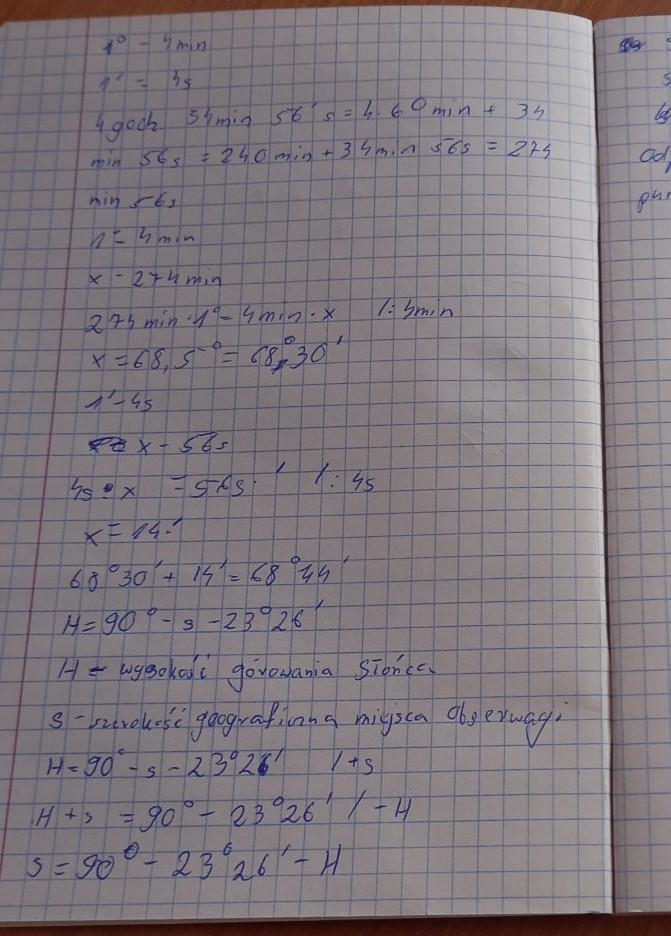 1° - 4min
1' = 4s
4 godz. 34min 56's = 4·60min + 34
min 56s = 240min + 34min 56s = 274
min 56s
1° = 4min
x - 274min
274min·1° = 4min·x /:4min
x = 68,5° = 68°30'
1' - 4s
x - 56s
4s·x = 56s·' /:4s
x = 14'
68°30' + 14' = 68°44'
H = 90° - s - 23°26'
H - wysokość górowania Słońca
s - szerokość geograficzna miejsca obserwacji
H = 90° - s - 23°26' /+s
H + s = 90° - 23°26' /-H
s = 90° - 23°26' - H